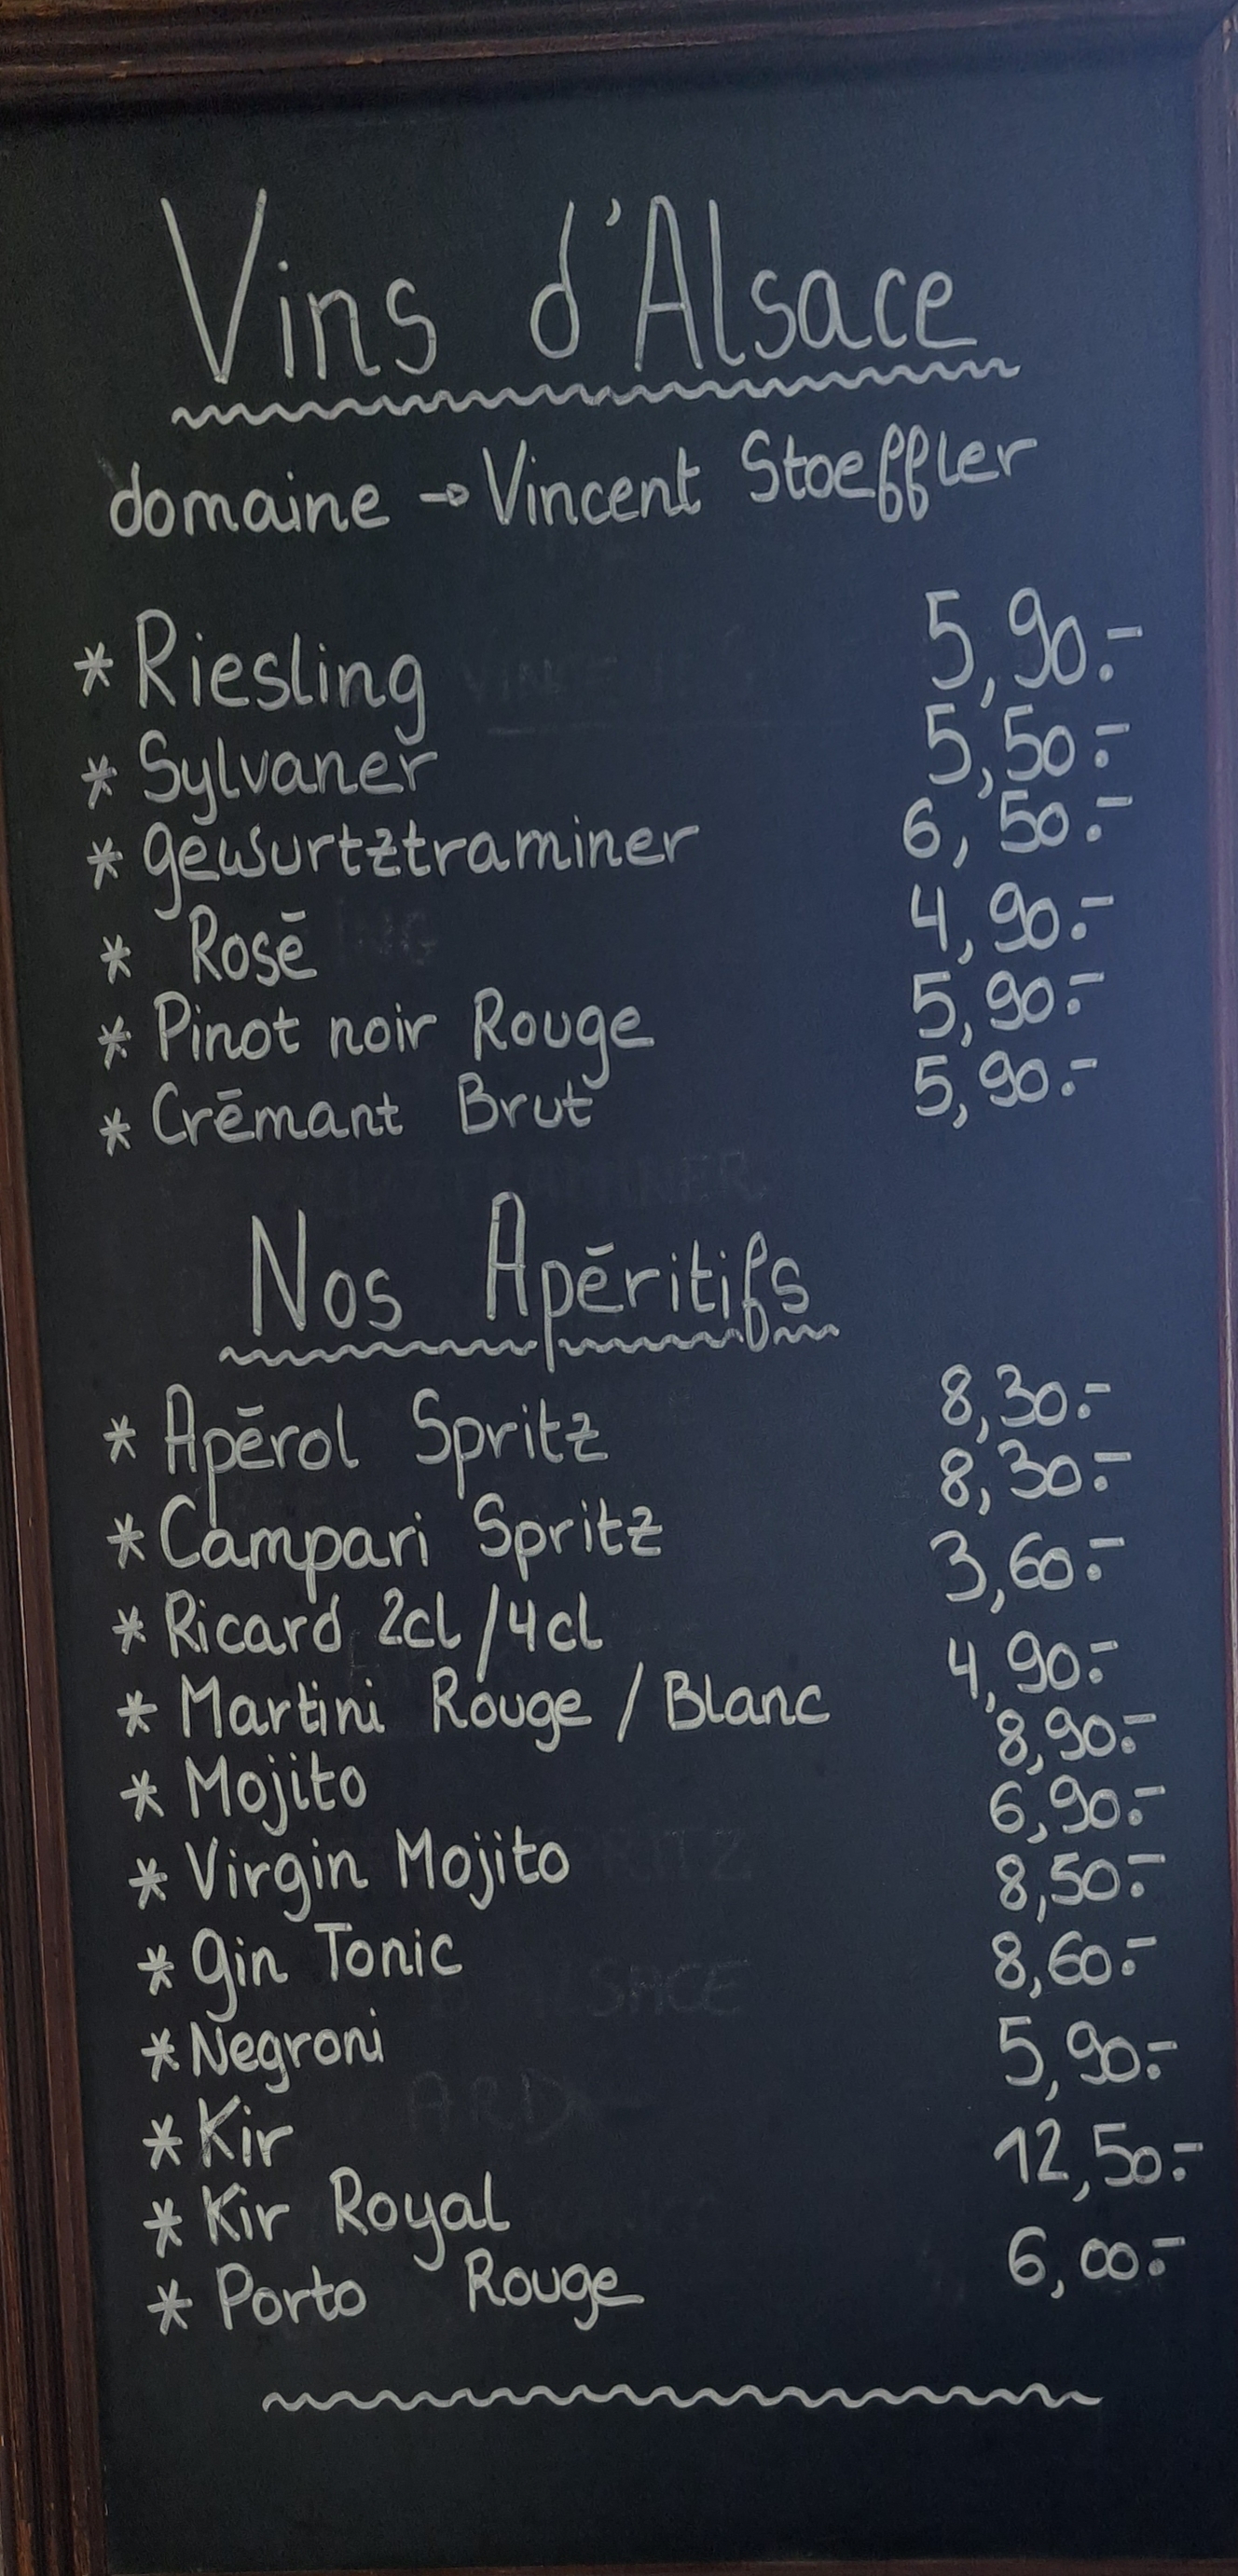 Vins d'Alsace
domaine → Vincent Stoeffler
* Riesling 5,90.-
* Sylvaner 5,50.-
* gewurtztraminer 6,50.-
* Rosē 4,90.-
* Pinot noir Rouge 5,90.-
* Crēmant Brut 5,90.-
Nos Apēritifs
* Apērol Spritz 8,30.-
* Campari Spritz 8,30.-
* Ricard 2cl/4cl 3,60.-
* Martini Rouge / Blanc 4,90.-
* Mojito 8,90.-
* Virgin Mojito 6,90.-
* gin Tonic 8,50.-
* Negroni 8,60.-
* Kir 5,90.-
* Kir Royal 12,50.-
* Porto Rouge 6,00.-